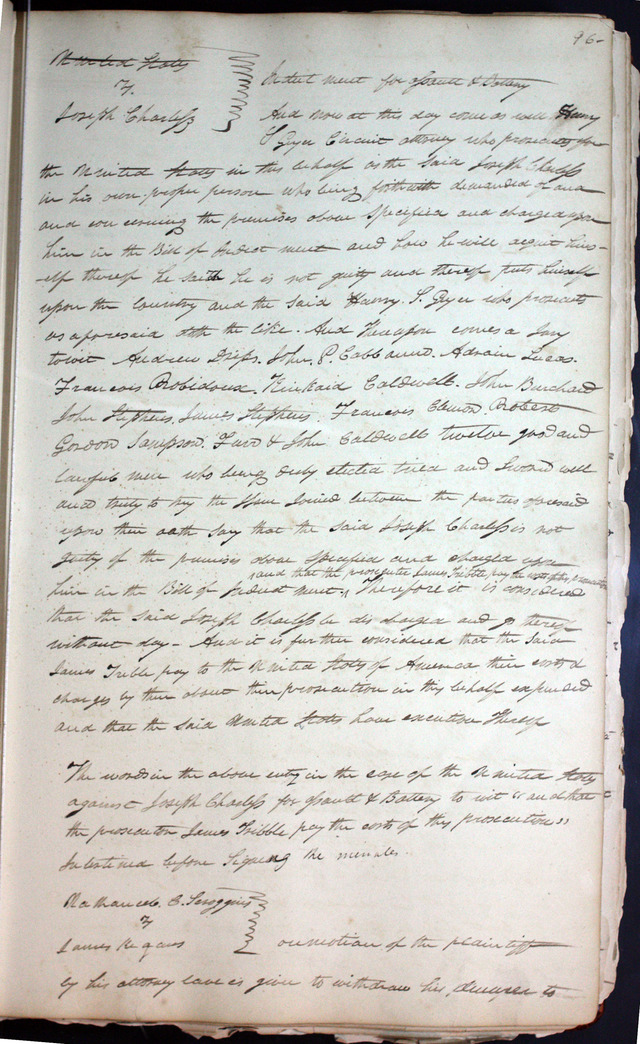 96-
United States
v.
Joseph Charless
Indictment for assault & Battery
And now at this day come as well Henry
S Geyer Circuit attorney who prosecutes for
the United States in this behalf as the said Joseph Charless
in his own proper person who being forthwith demanded of and
and concerning the premises above specified and charged upon
him in the Bill of Indictment and how he will acquit him-
self thereof he saith he is not guilty and thereof puts himself
upon the Country and the said Henry. S. Geyer who prosecutes
as aforesaid doth the like. And Thereupon comes a Jury
towit Andrew John. P. Cabbanne. Adrain Lucas.
Francois Robidoux. Kinkaid Caldwell. John Burchard
John Stephens, James Stephens, Francois Robert
Gordon Sampson. Farr & John Caldwell twelve good and
lawful men who being duly elected tried and Sworn well
and truly to try the Issue Joined between the parties aforesaid
upon their oath say that the said Joseph Charless is not
guilty of the premises above specified and charged upon
and that the prosecutor James Tribble pay the costs of this prosecution
him in the Bill of Indictment, Therefore it is considered
that the said Joseph Charless be discharged and go thereof
without day - And it is further considered that the said
James Trible pay to the United States of America their costs &
charges by them about their prosecution in this behalf expended
and that the said United States have execution Thereof
The words in the above entry in the case of the United States
against Joseph Charless for assault & Battery to wit "and that
the prosecutor James Tribble pay the costs of this prosecution"
Interlined before Signing the minutes.
Nathaniel C. Scroggins
v
James
on motion of the plaintiff
by his attorney leave is given to withdraw his demurrer to